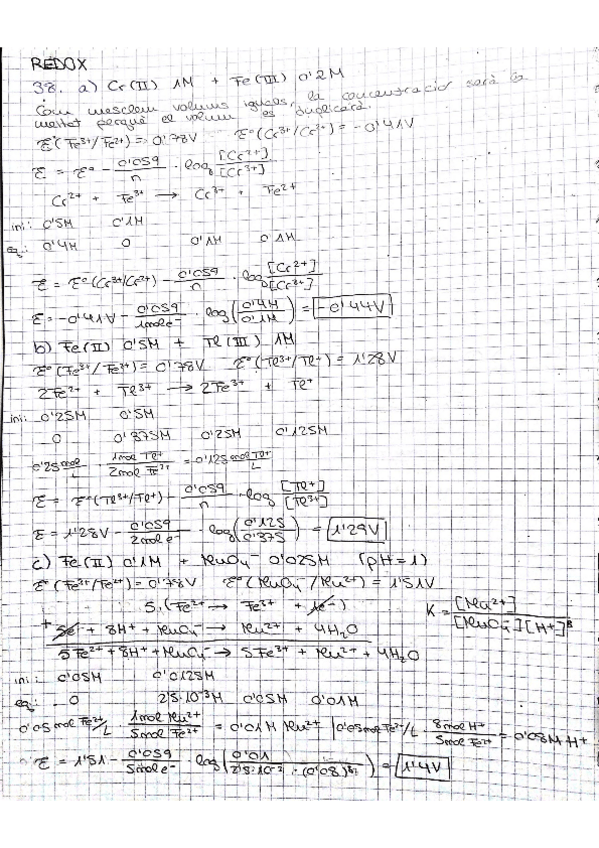 REDOX
38. a) Cr(II) 1M + Fe(III) 0'2M
Com mesclem volums iguals, la concentració serà la
meitat perquè el volum es duplicarà.
E°(Fe3+/Fe2+) = 0'78V E°(Cr3+/Cr2+) = -0'41V
E = E° - 0'059/n · log [Cr2+]/[Cr3+]
Cr2+ + Fe3+ → Cr3+ + Fe2+
ini: 0'5M 0'1M
eq: 0'4M 0 0'1M 0'1M
E = E°(Cr3+/Cr2+) - 0'059/n · log [Cr2+]/[Cr3+]
E = -0'41V - 0'059/1mol e- · log(0'4M/0'1M) = -0'44V
b) Fe(II) 0'5M + Tl(III) 1M
E°(Fe3+/Fe2+) = 0'78V E°(Tl3+/Tl+) = 1'28V
2Fe2+ + Tl3+ → 2Fe3+ + Tl+
ini: 0'25M 0'5M
0 0'375M 0'25M 0'125M
0'25 mol/L · 1mol Tl+/2mol Fe2+ = 0'125 mol Tl+/L
E = E°(Tl3+/Tl+) - 0'059/n · log [Tl+]/[Tl3+]
E = 1'28V - 0'059/2mol e- · log(0'125/0'375) = 1'29V
c) Fe(II) 0'1M + MnO4- 0'025M (pH=1)
E°(Fe3+/Fe2+) = 0'78V E°(MnO4-/Mn2+) = 1'51V
5·(Fe2+ → Fe3+ + 1e-) K = [Mn2+]/[MnO4-][H+]8
+ 5e- + 8H+ + MnO4- → Mn2+ + 4H2O
5Fe2+ + 8H+ + MnO4- → 5Fe3+ + Mn2+ + 4H2O
ini: 0'05M 0'0125M
eq: 0 2'5·10-3M 0'05M 0'01M
0'05 mol Fe2+/L · 1mol Mn2+/5mol Fe2+ = 0'01M Mn2+ | 0'05 mol Fe2+/L · 8mol H+/5mol Fe2+ = 0'08M H+
E = 1'51 - 0'059/5mol e- · log(0'01/2'5·10-3·(0'08)8) = 1'4V